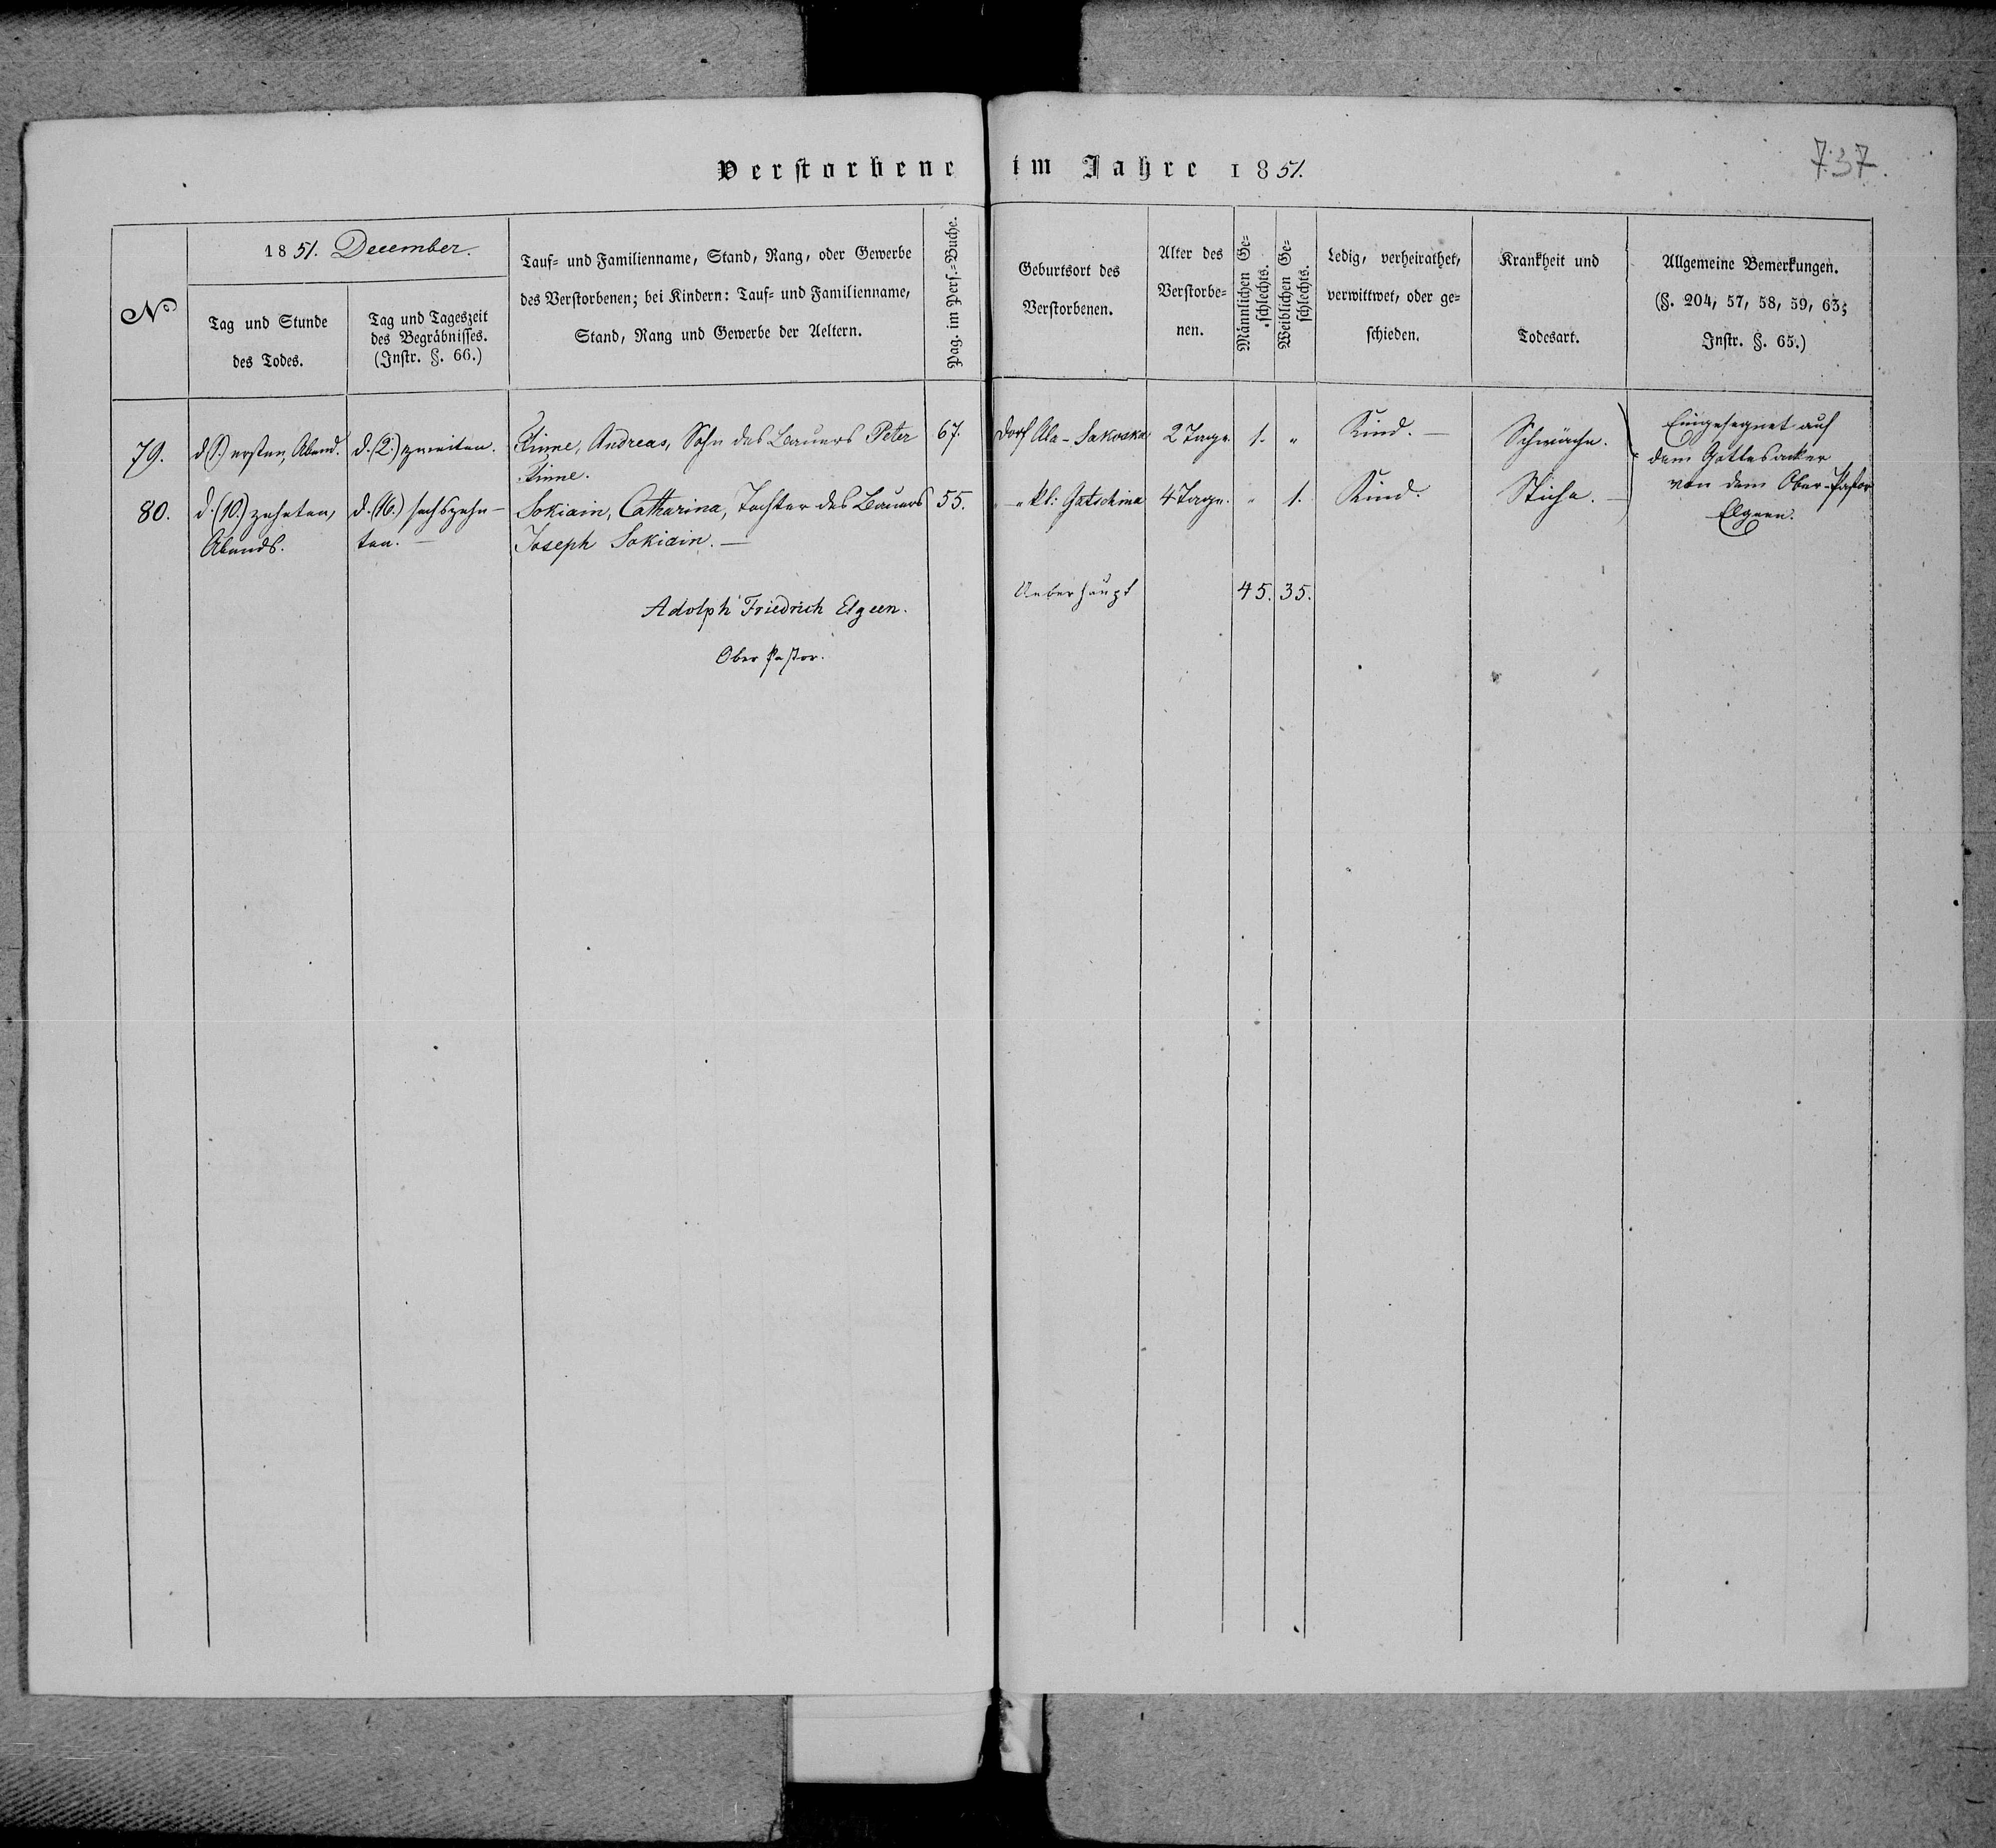 Verstorbene im Jahre 1851.
737.
No
1851. December.
Tag und Stunde
des Todes.
Tag und Tageszeit
des Begräbnisses.
(Instr. §. 66.)
Tauf- und Familienname, Stand, Rang, oder Gewerbe
des Verstorbenen; bei Kindern: Tauf- und Familienname,
Stand, Rang und Gewerbe der Aeltern.
Pag. im Pers.-Buche.
Geburtsort des
Verstorbenen.
Alter des
Verstorbe-
nen.
Männlichen Ge-
schlechts.
Weiblichen Ge-
schlechts.
Ledig, verheirathet,
verwittwet, oder ge-
schieden.
Krankheit und
Todesart.
Allgemeine Bemerkungen.
(§. 204, 57, 58, 59, 63;
Instr. §. 65.)
79.
d. (1.) ersten, Abend.
d. (2.) zweiten.
Andreas, Sohn des Bauers Peter
67.
Dorf Ala-Sakoska
2 Tage.
1.
"
Kind. —
Schwäche.
Eingesegnet auf
dem Gottesacker
von dem Ober-Pastor
Elgeen.
80.
d. (10.) zehnten,
Abends.
d. (16.) sechszehn-
ten. —
Sokiain, Catharina, Tochter des Bauers
Joseph Sokiain. —
55.
" kl: Gatschina
4 Tage.
"
1.
Kind.
Stiche. —
Adolph Friedrich Elgeen.
Ober Pastor.
Ueberhaupt
45. 35.